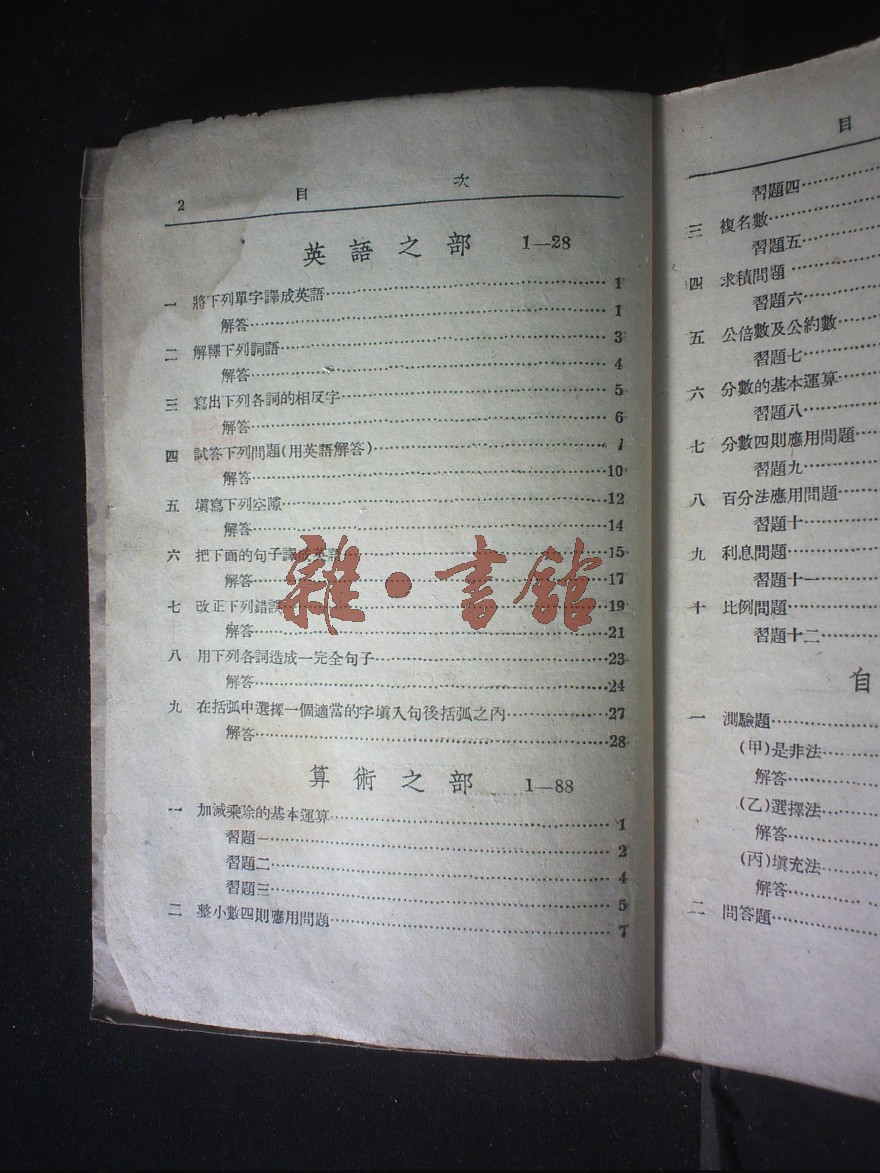 2 目 次
英語之部 1—28
一 將下列單字譯成英語…………1
解答…………1
二 解釋下列詞語…………3
解答…………4
三 寫出下列各詞的相反字…………5
解答…………6
四 試答下列問題(用英語解答)…………
解答…………10
五 填寫下列空隙…………12
解答…………14
六 把下面的句子譯成英語…………15
解答…………17
七 改正下列錯誤…………19
解答…………21
八 用下列各詞造成一完全句子…………23
解答…………24
九 在括弧中選擇一個適當的字填入句後括弧之內…………27
解答…………28
算術之部 1—88
一 加減乘除的基本運算…………1
習題一…………2
習題二…………4
習題三…………5
二 整小數四則應用問題…………7
雜·書館
目
習題四…………
三 複名數…………
習題五…………
四 求積問題…………
習題六…………
五 公倍數及公約數…………
習題七…………
六 分數的基本運算…………
習題八…………
七 分數四則應用問題…………
習題九…………
八 百分法應用問題…………
習題十…………
九 利息問題…………
習題十一…………
十 比例問題…………
習題十二…………
自
一 測驗題…………
(甲)是非法…………
解答…………
(乙)選擇法…………
解答…………
(丙)填充法…………
解答…………
二 問答題…………